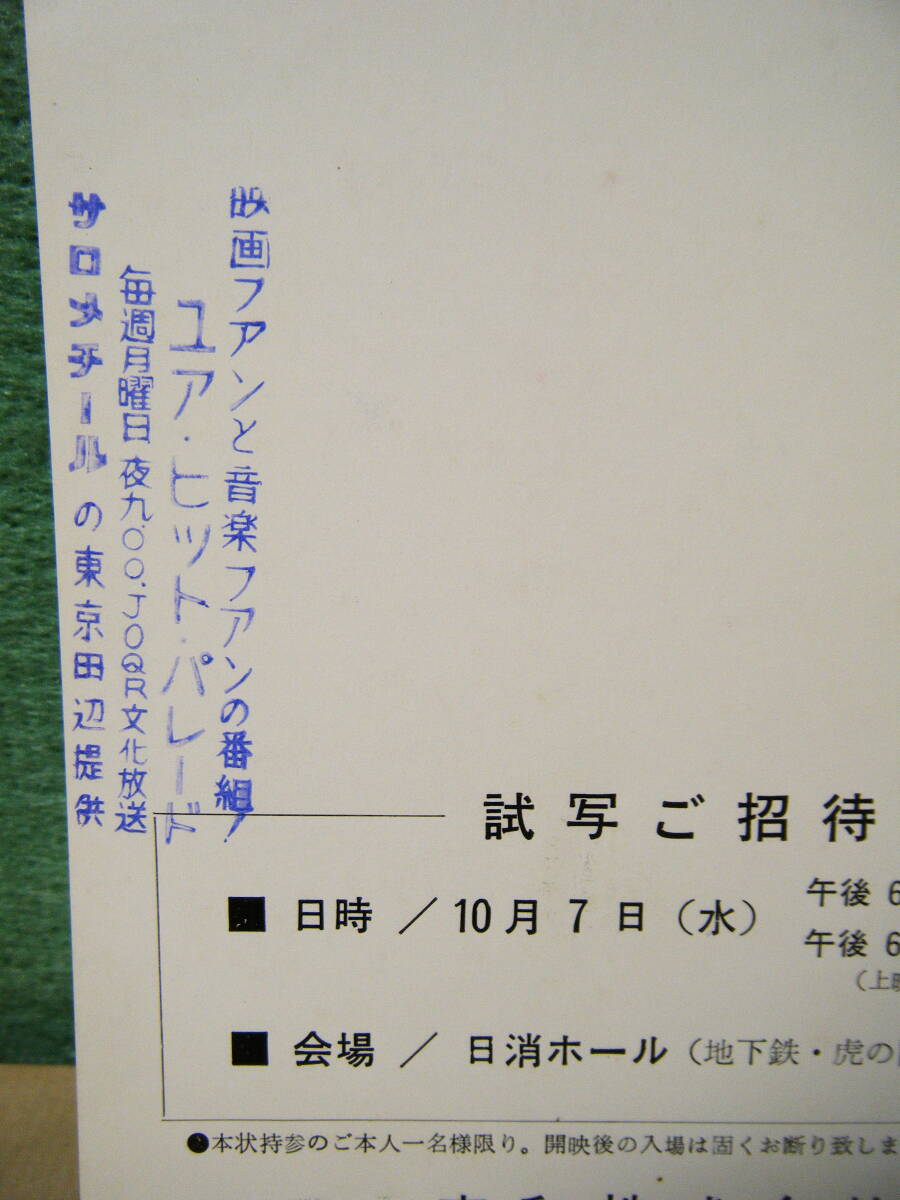 映画フアンと音楽フアンの番組!
ユア・ヒット・パレード
毎週月曜日 夜九.〇〇.JOQR文化放送
サロメチールの東京田辺提供
試写ご招待
■ 日時 / 10月7日(水)
午後 6
午後 6
(上映
■ 会場 / 日消ホール(地下鉄・虎の
●本状持参のご本人一名様限り。開映後の入場は固くお断り致しま